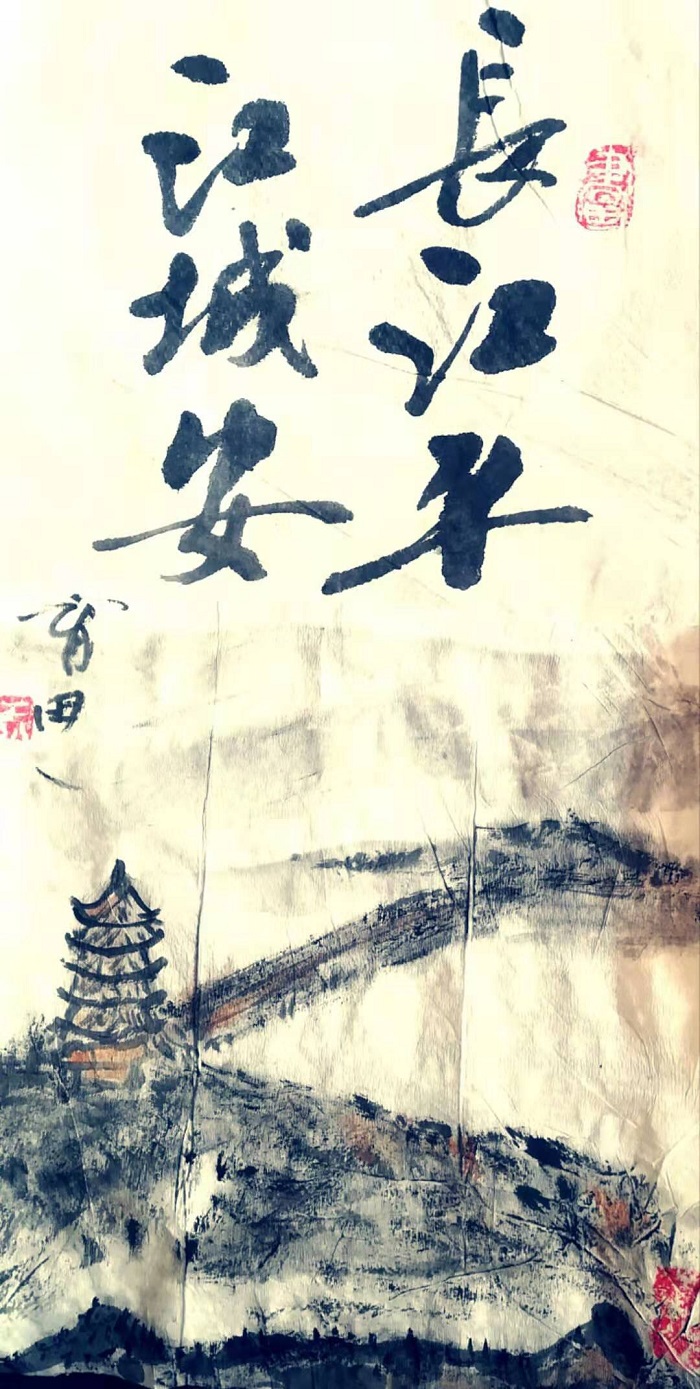 長江平
江城安
育田